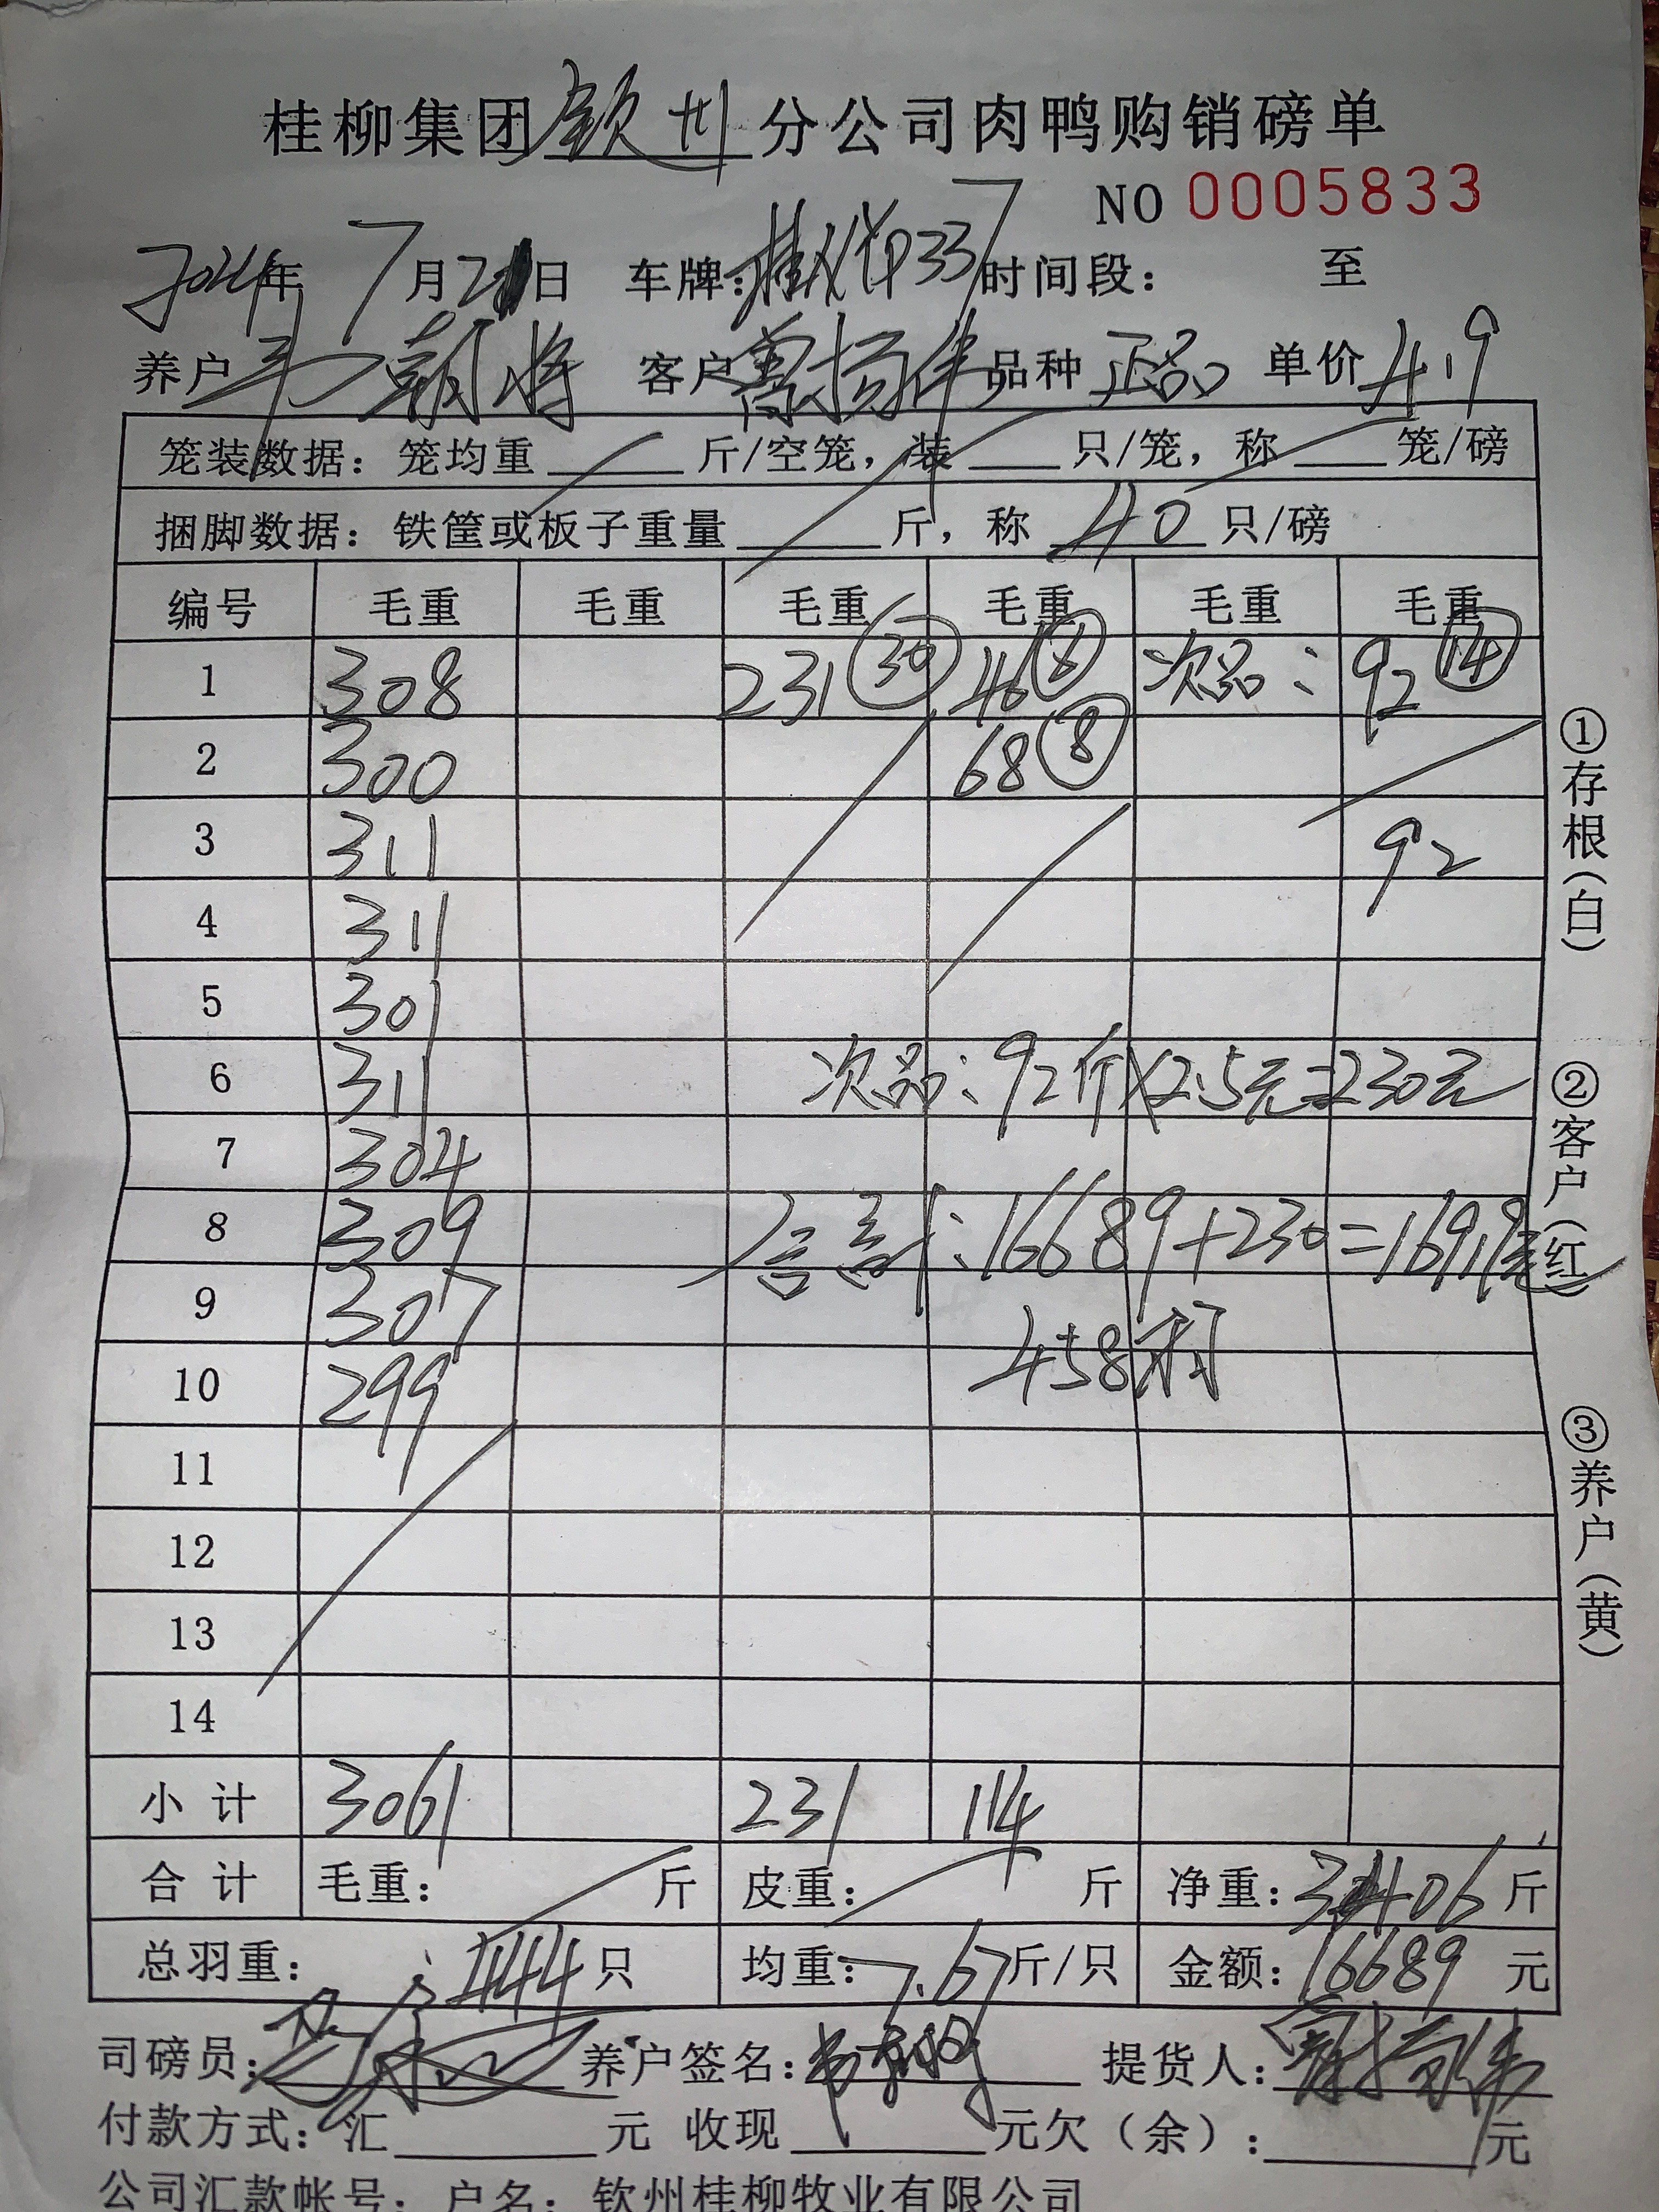 桂柳集团钦州分公司肉鸭购销磅单
NO 0005833
2024年 7月2日 车牌: 337 时间段: 至
养户 朝将 客户 曾扬伟 品种 正品 单价 4.9
笼装数据: 笼均重 斤/空笼, 装 只/笼, 称 笼/磅
捆脚数据: 铁筐或板子重量 斤, 称 40 只/磅
编号 毛重 毛重 毛重 毛重 毛重 毛重
1 308 231 30 46 6 次品: 92 14
2 300 68 8
3 311 92
4 311
5 301
6 311 次品: 92斤×2.5元=230元
7 304
8 309 合计: 16689+230=16919元
9 307 458羽
10 299
11
12
13
14
小计 3061 231 114
合计 毛重: 斤 皮重: 斤 净重: 3406 斤
总羽重: 444 只 均重: 7.67 斤/只 金额: 16689 元
司磅员: 养户签名: 提货人:
付款方式: 汇 元 收现 元 欠(余): 元
公司汇款帐号: 户名: 钦州桂柳牧业有限公司
①存根(白)
②客户(红)
③养户(黄)